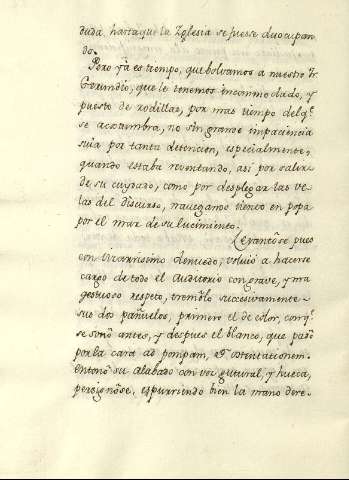 duda, hasta que la Yglesia se fuesse desocupan
do.
Pero ya es tiempo, que bolvamos a nuestro fr
Gerundio, que le tenemos incommodado, y
puesto de rodillas, por mas tiempo del q.e
se acostumbra, no sin grande impaciencia
suia por tanta detencion, especialmente,
quando estaba reventando, assi por salir
de su cuydado, como por desplegar las ve
las del discurso, navegando viento en popa
por el mar de su lucimiento.
Levantose pues
con vizarrissimo denuedo, volvió a hacerse
cargo de todo el Auditorio con grave, y ma
gestuoso respeto, tremoló successivamente
sus dos pañuelos, primero el de color, con q.e
se sonó antes, y despues el blanco, que pasó
por la cara ad pompam, et ostentationem.
Entonó su alabado con voz gutural, y hueca,
persignose, espurriendo bien la mano dere-